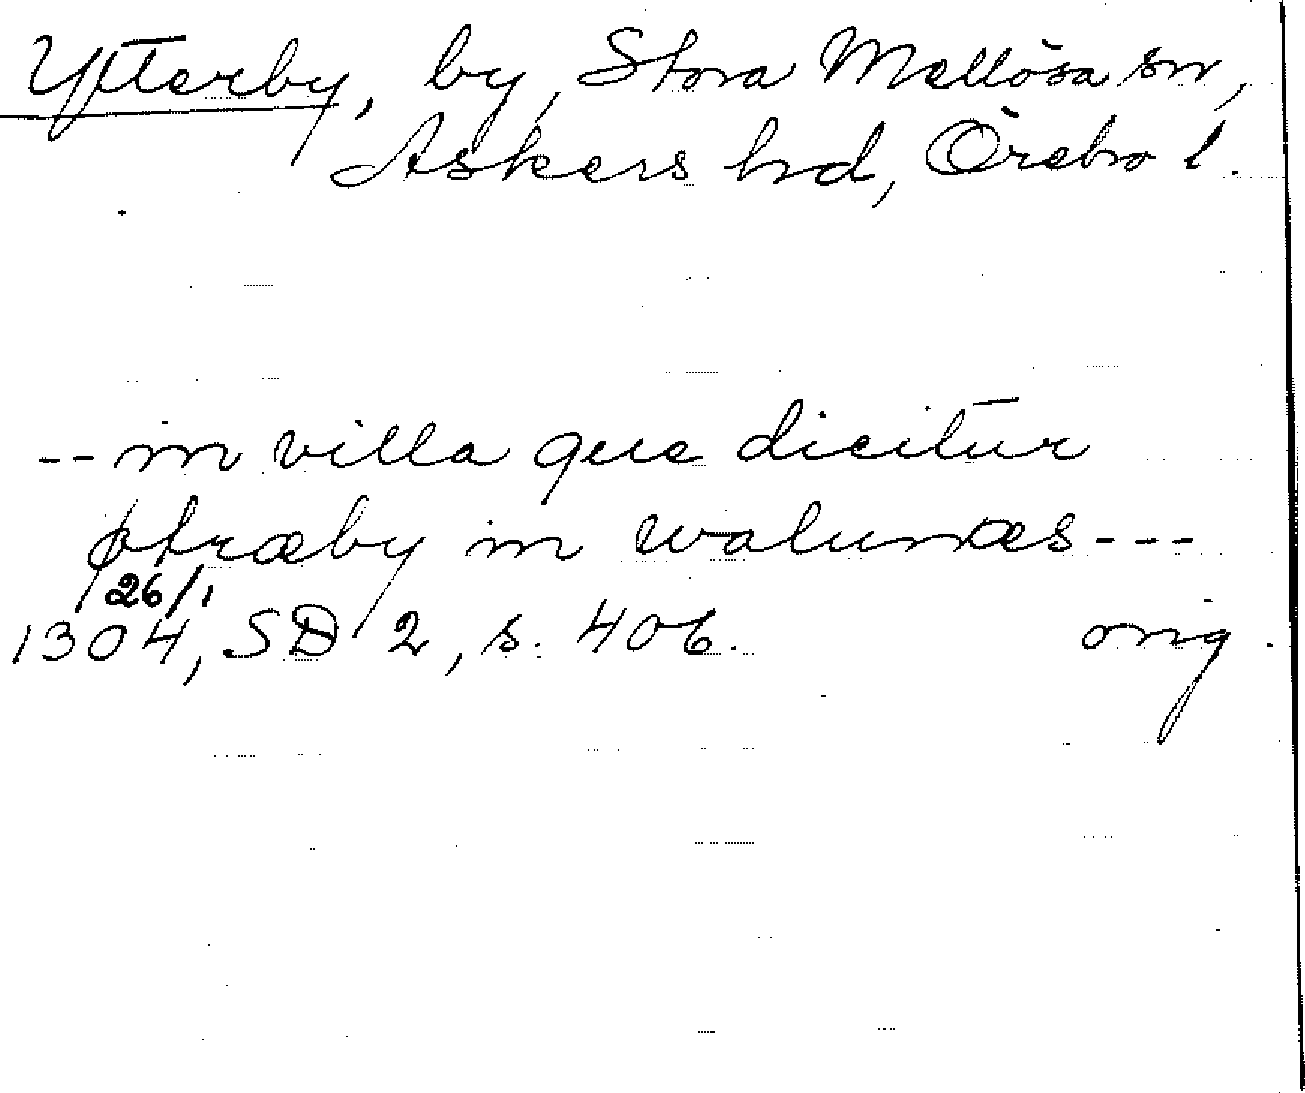 Ytterby, by, Stora Mellösa sn,
Askers hd, Örebro l.
-- in villa que dicitur
øtræby in walunæs ---
26/1
1304, SD 2, s. 406. orig.